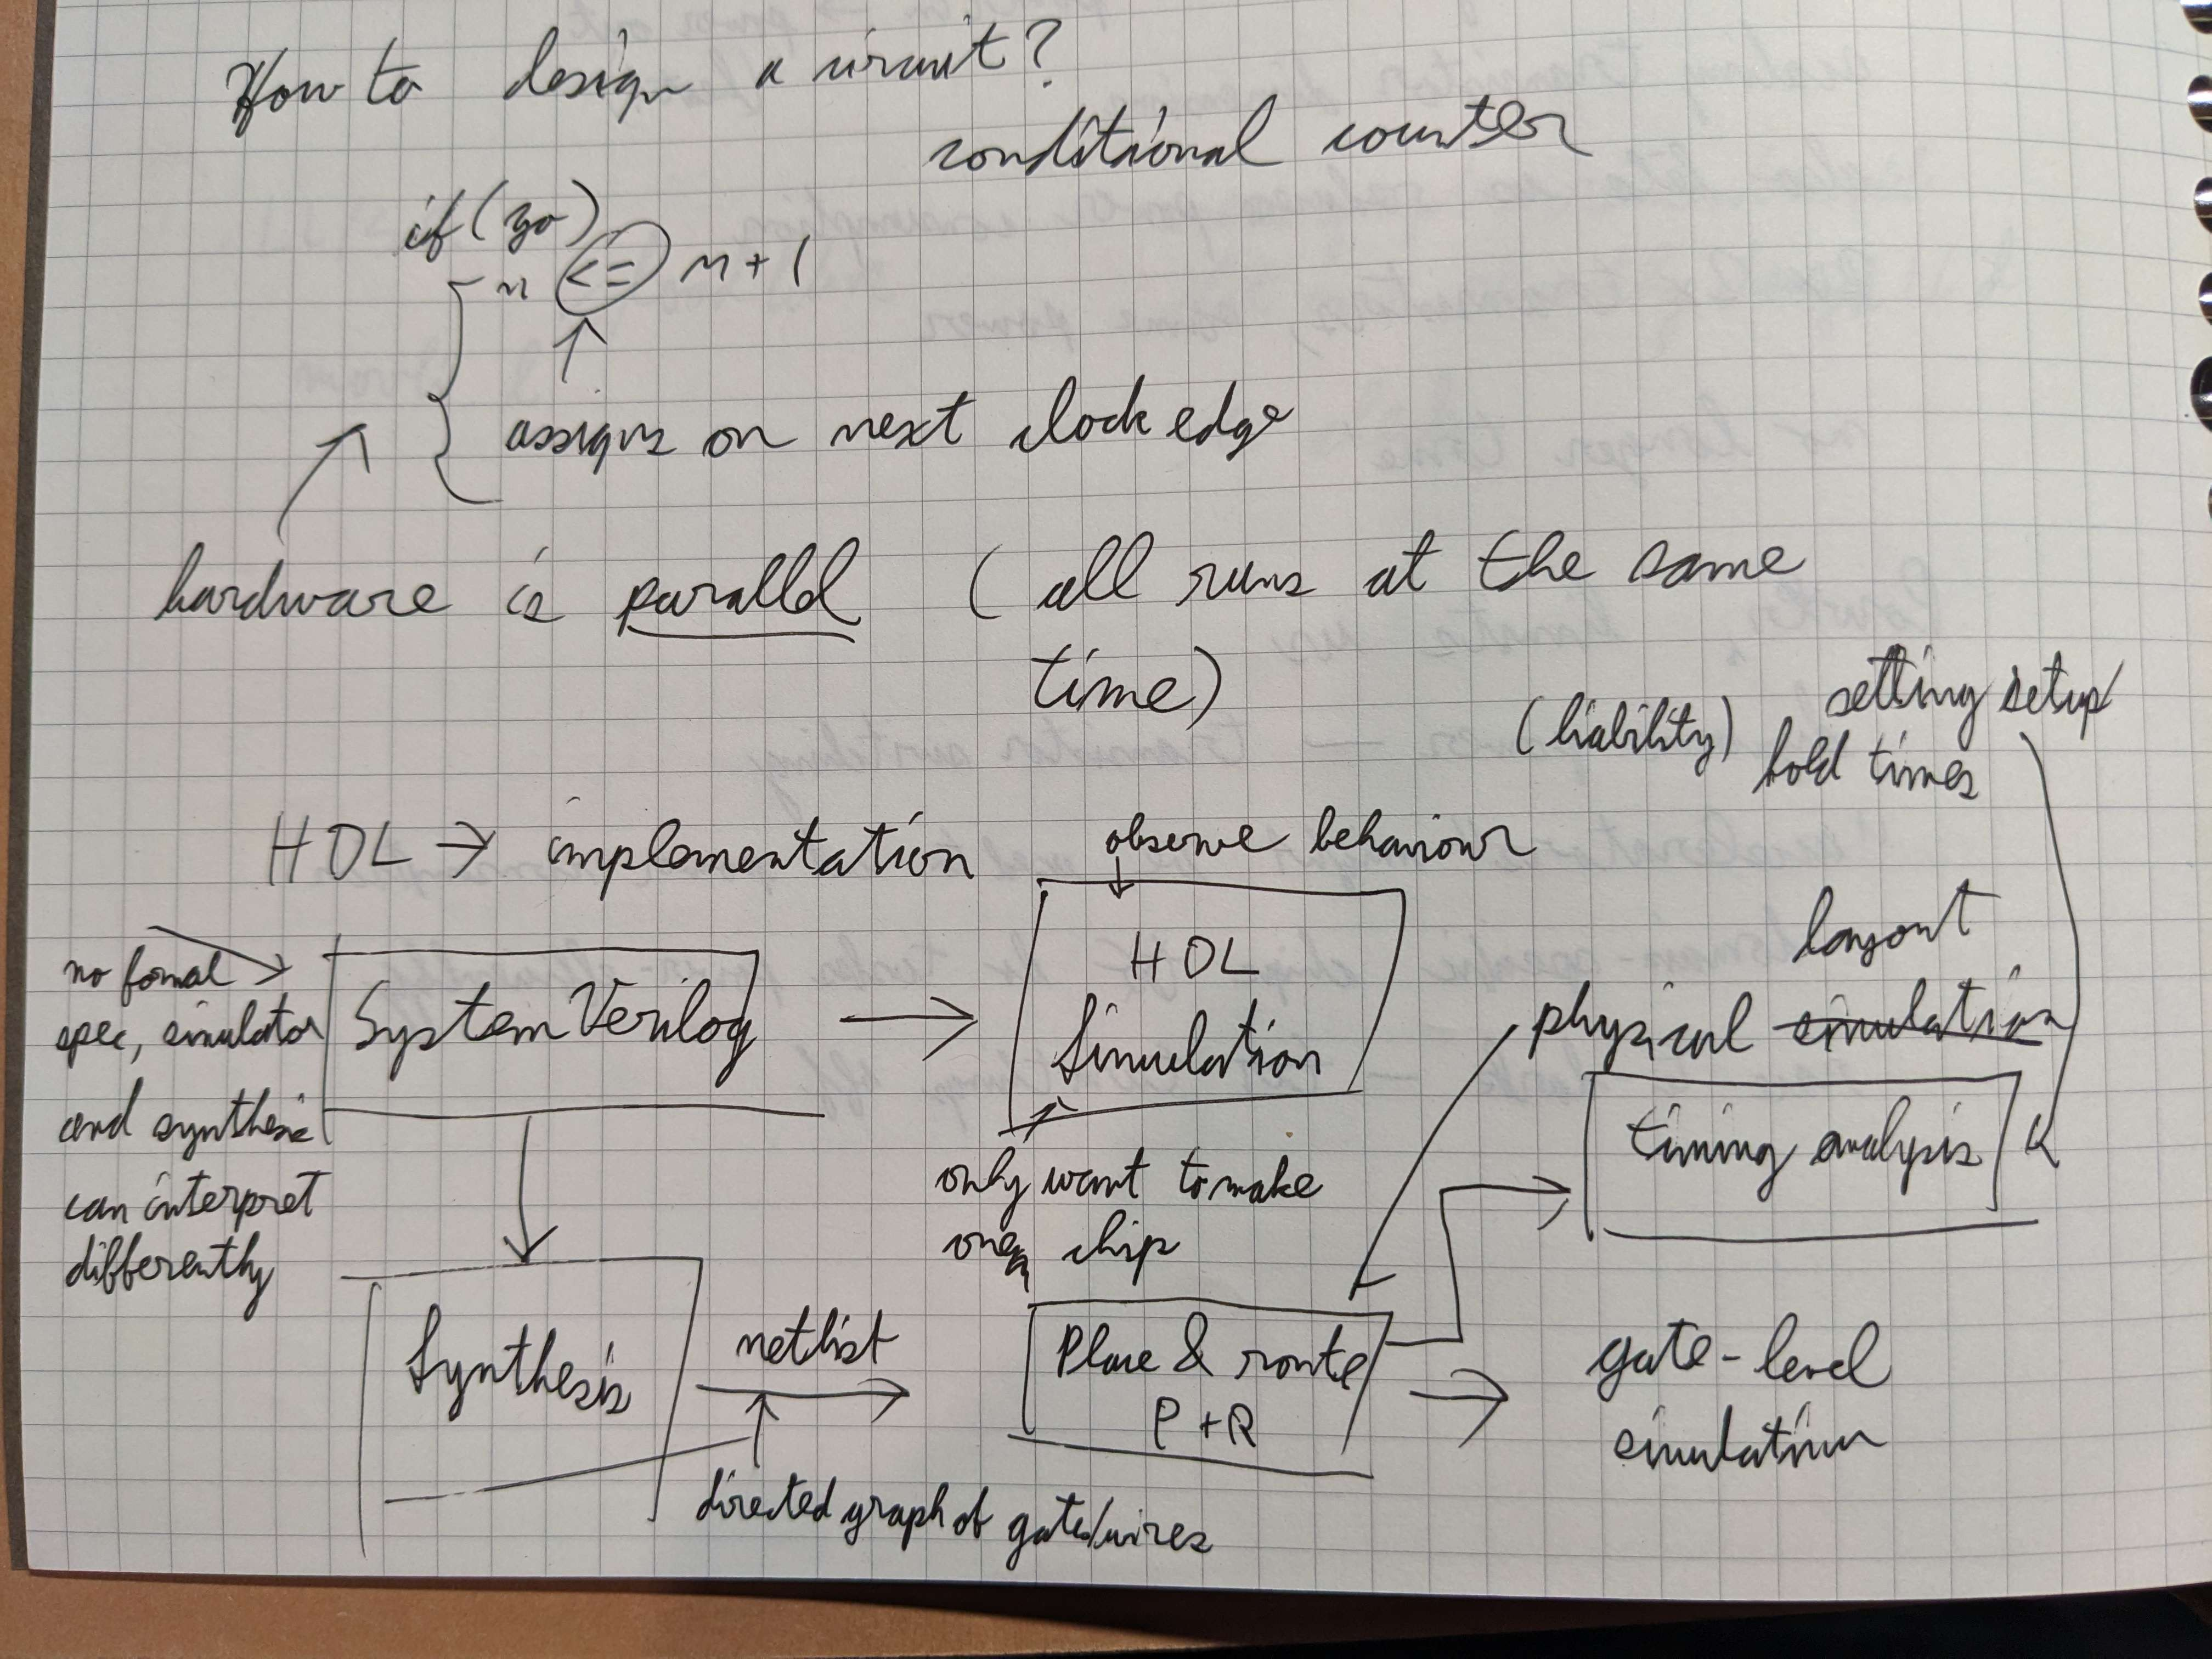 How to design a circuit?
conditional counter
if (go)
n <= n + 1
assigns on next clock edge
hardware is parallel (all runs at the same
time)
(liability)
setting setup/
hold times
HDL → implementation
observe behaviour
no formal
spec, simulator
and synthesis
can interpret
differently
SystemVerilog
HDL
Simulation
layout
physical simulation
timing analysis
only want to make
one chip
Synthesis
netlist
Place & route
P + R
gate-level
simulation
directed graph of gates/wires